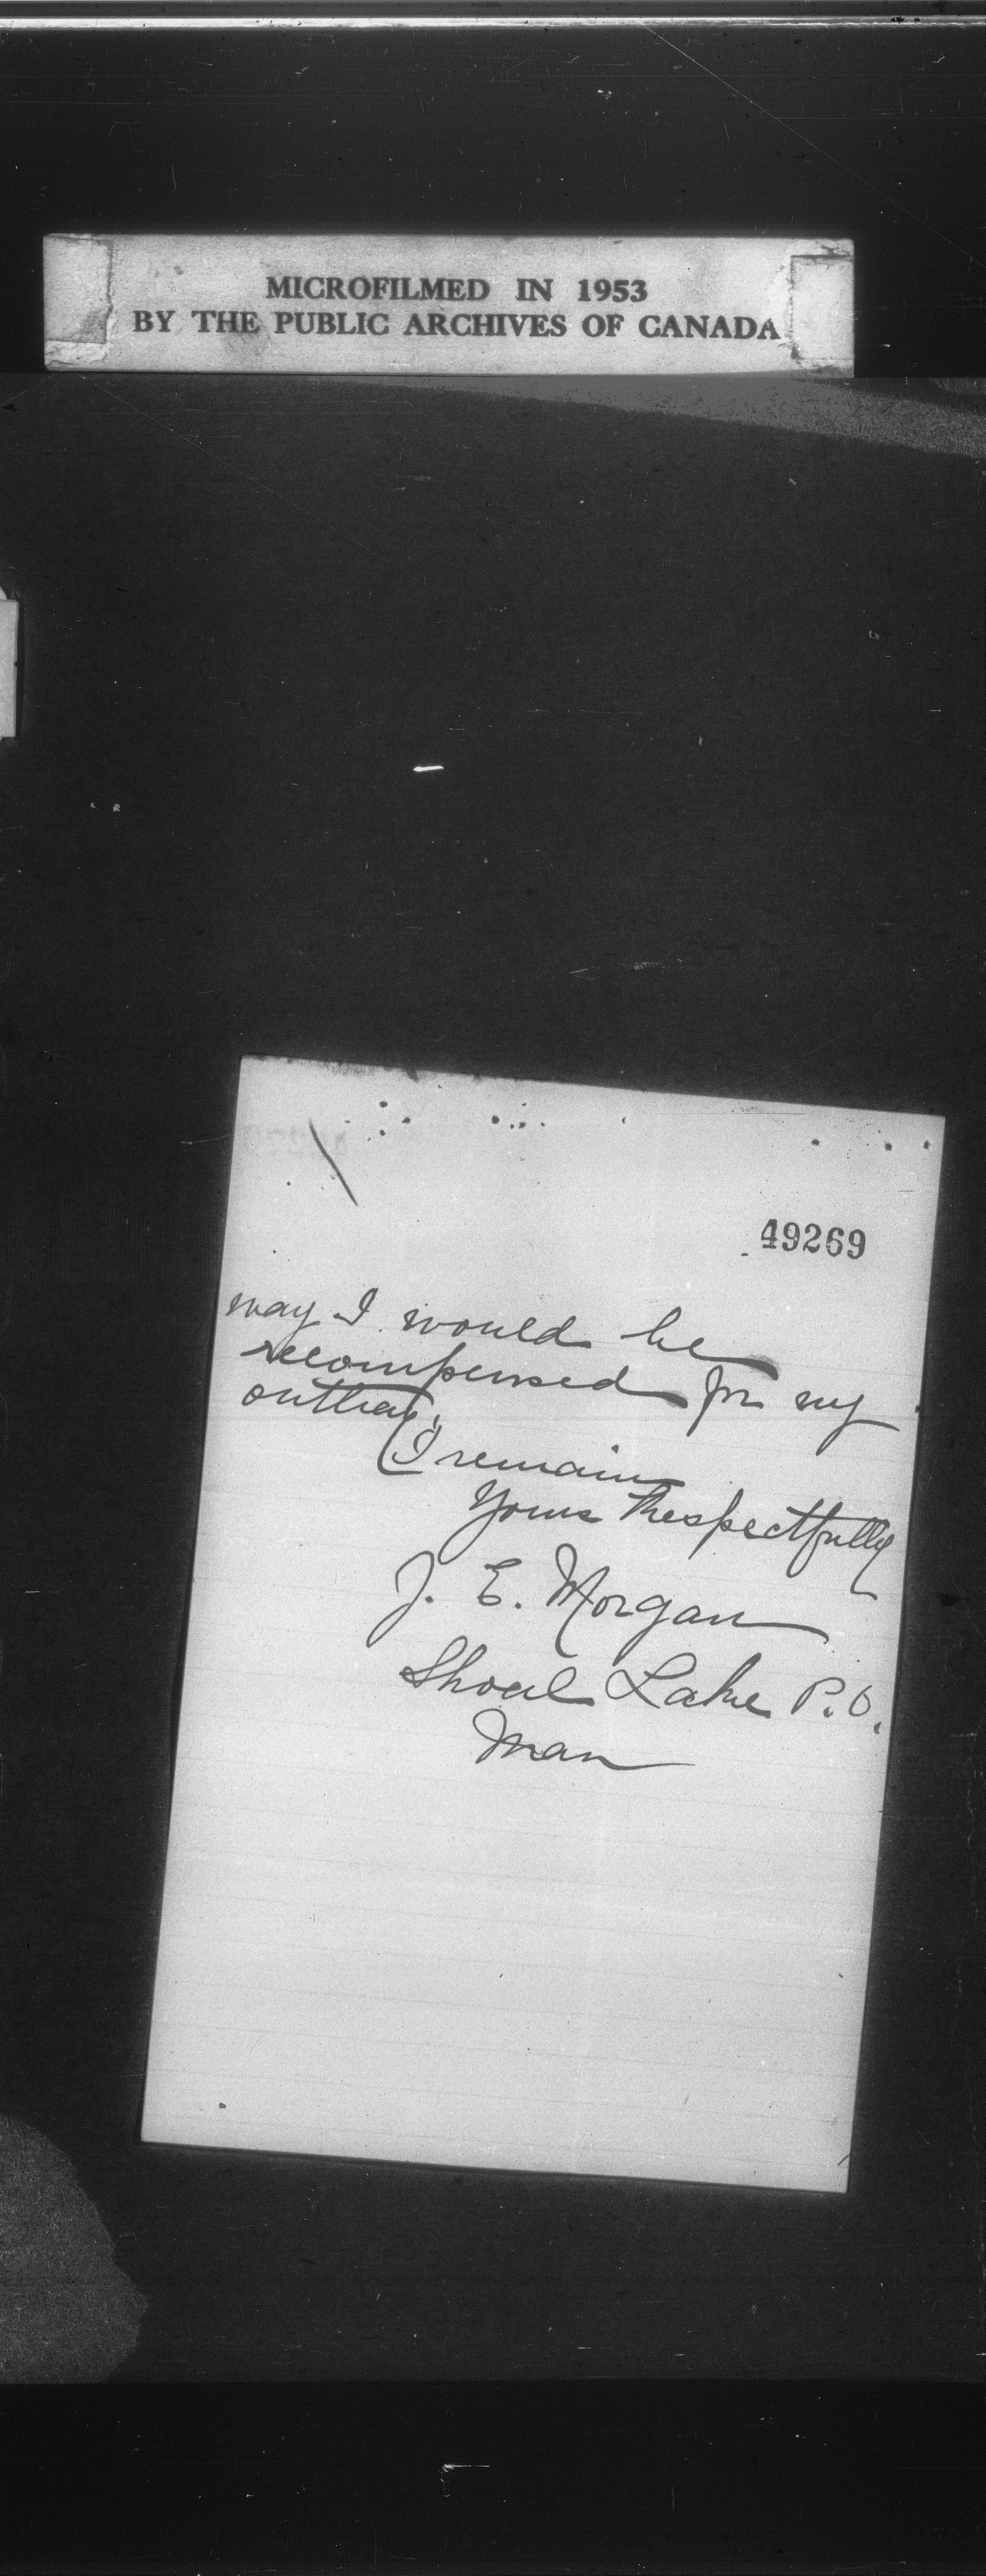 MICROFILMED IN 1953
BY THE PUBLIC ARCHIVES OF CANADA
49269
way I would be
recompensed for my
outlay.
I remain
Yours Respectfully
J. E. Morgan
Shoal Lake P.O.
Man